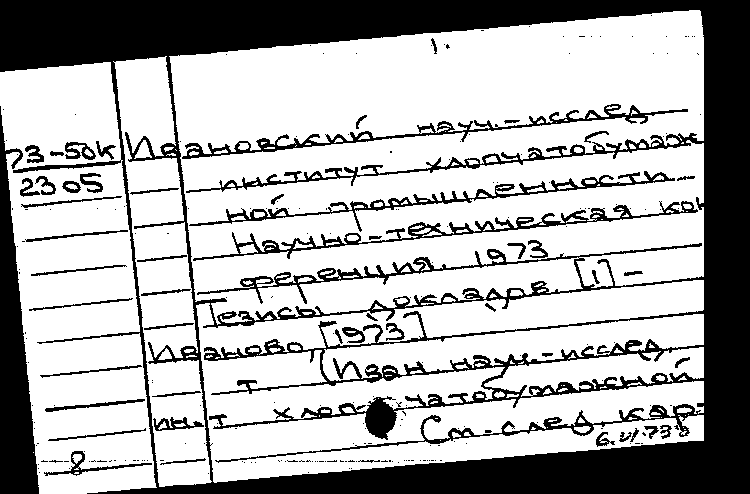 1.
73-50к Ивановский науч.-исслед
2305 институт хлопчатобумаж
ной промышленности
Научно-техническая кон
ференция. 1973.
Тезисы докладов. [1] -
Иваново, [1973].
т. (Иван. науч.-исслед.
ин.-т хлоп-чатобумажной
См. след. кар-
8